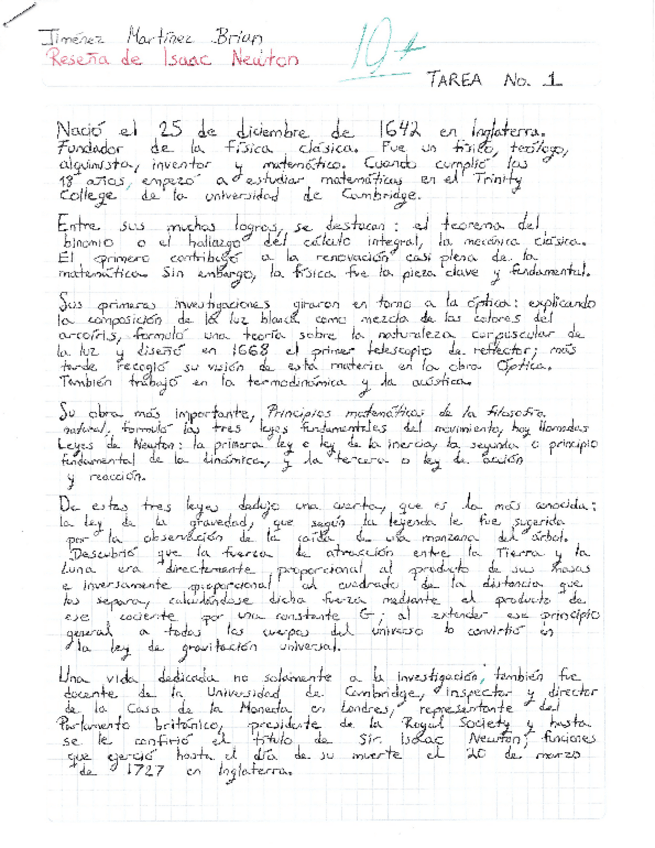 Jiménez Martínez Brian
10+
Reseña de Isaac Newton
TAREA No. 1
Nació el 25 de diciembre de 1642 en Inglaterra.
Fundador de la física clásica. Fue un físico, teólogo,
alquimista, inventor y matemático. Cuando cumplió los
18 años, empezó a estudiar matemáticas en el Trinity
College de la universidad de Cambridge.
Entre sus muchos logros, se destacan: el teorema del
binomio o el hallazgo del cálculo integral, la mecánica clásica.
El primero contribuyó a la renovación casi plena de la
matemática. Sin embargo, la física fue la pieza clave y fundamental.
Sus primeras investigaciones giraron en torno a la óptica: explicando
la composición de la luz blanca como mezcla de los colores del
arcoíris, formuló una teoría sobre la naturaleza corpuscular de
la luz y diseñó en 1668 el primer telescopio de reflector; más
tarde recogió su visión de esta materia en la obra Óptica.
También trabajó en la termodinámica y la acústica.
Su obra más importante, Principios matemáticos de la filosofía
natural, formuló las tres leyes fundamentales del movimiento, hoy llamadas
Leyes de Newton: la primera ley o ley de la inercia, la segunda o principio
fundamental de la dinámica, y la tercera o ley de acción
y reacción.
De estas tres leyes dedujo una cuarta, que es la más conocida:
la ley de la gravedad, que según la leyenda le fue sugerida
por la observación de la caída de una manzana del árbol.
Descubrió que la fuerza de atracción entre la Tierra y la
Luna era directamente proporcional al producto de sus masas
e inversamente proporcional al cuadrado de la distancia que
los separa, calculándose dicha fuerza mediante el producto de
ese cociente por una constante G; al extender ese principio
general a todos los cuerpos del universo lo convirtió en
la ley de gravitación universal.
Una vida dedicada no solamente a la investigación, también fue
docente de la Universidad de Cambridge, inspector y director
de la Casa de la Moneda en Londres, representante del
Parlamento británico, presidente de la Royal Society y hasta
se le confirió el título de Sir. Isaac Newton; funciones
que ejerció hasta el día de su muerte el 20 de marzo
de 1727 en Inglaterra.